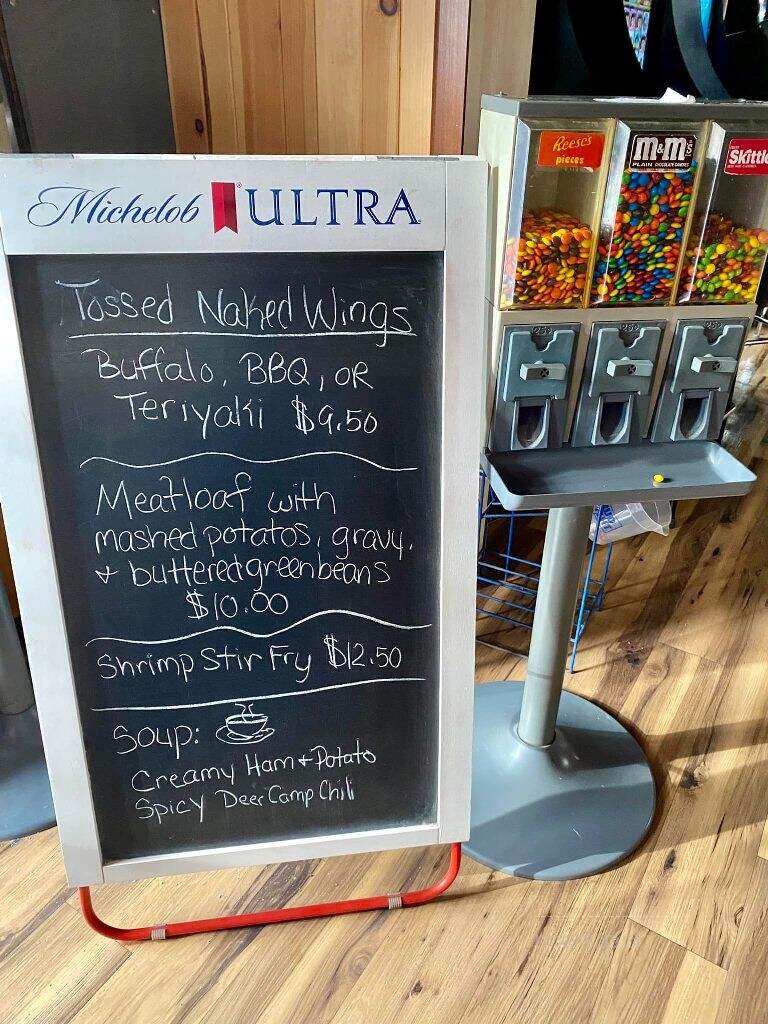 Michelob ULTRA
Tossed Naked Wings
Buffalo, BBQ, OR
Teriyaki $9.50
Meatloaf with
mashed potatos, gravy,
+ buttered green beans
$10.00
Shrimp Stir Fry $12.50
Soup:
Creamy Ham + Potato
Spicy Deer Camp Chili
Reese's
pieces
m&m's
PLAIN CHOCOLATE CANDIES
Skittle
25¢ 25¢ 25¢